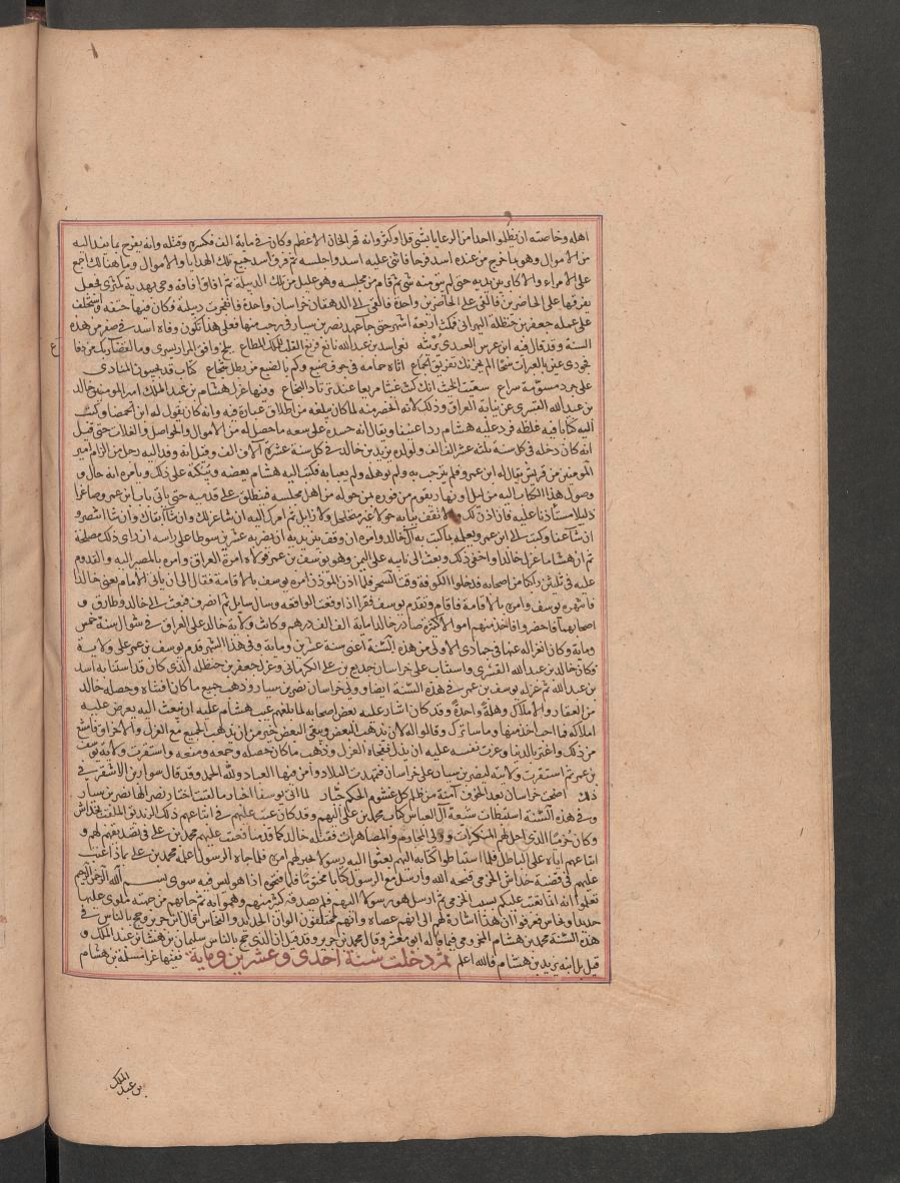 اهله وخاصته ان يظلموا احدا من الرعايا بشي قل او كثر وانه قهر الخاقان الاعظم وكان في ماية الف فكسره وقتله وانه يفرح بما يفد اليه
من الاموال وهو بما خرج من عنده اشد فرحا فاثنى عليه اسد واجلسه ثم فرق اسد جميع تلك الهدايا والاموال وما هنالك اجمع
على الامراء والاكابر بين يديه حتى لم يبق منه شي ثم قام من مجلسه وهو عليل من تلك الدبيلة ثم افاق افاقة وجي بهدية كمثرى فجعل
يفرقها على الحاضرين فالقى على الحاضرين واحدة فالقى الى الدهقان خراسان واحدة فانفجرت دبيلته وكان فيها حتفه واستخلف
على عمله جعفر بن حنظلة البهراني فمكث اربعة اشهر حتى جا عهد نصر بن سيار في رجب منها فعلى هذا تكون وفاة اسد في صفر من هذه
السنة وقد قال فيه ابن عرس العبدي يرثيه نعى اسد بن عبد الله ناع فريع القلب للملك المطاع ببلخ وافق المقدار يسري وما لقضا ربك من دفاع
فجودي عين بالعبرات سحا الم يحزنك تفريق الجماع اتاه حمامه في جوف ضيع وكم بالضيع من بطل شجاع كتايب قد يجيبون المنادي
على جرد مسومة سراع سقيت الغيث انك كنت غيثا مريعا عند مرتاد النجاع وفيها عزل هشام بن عبد الملك امير المومنين خالد
بن عبد الله القسري عن نيابة العراق وذلك لانه انحصر منه لما كان يبلغه من اطلاق عبارة فيه وانه كان يقول له ابن الحمقا وكتب
اليه كتابا فيه غلظة فرد عليه هشام ردا عنيفا ويقال انه حسده على سعة ما حصل له من الاموال والحواصل والغلات حتى قيل
انه كان دخله في كل سنة ثلثة عشر الف الف ولولده يزيد بن خالد في كل سنة عشرة الاف الف وقيل انه وفد اليه رجل من الزام امير
المومنين من قريش يقال له ابن عمرو فلم يرحب به ولم يوهله ولم يعبا به فكتب اليه هشام يعنفه ويبكته على ذلك ويامره انه حال
وصول هذا الكتاب اليه من ليل او نهار يقوم من فوره بمن حوله من اهل مجلسه فينطلق على قدميه حتى ياتي باب ابن عمرو صاغرا
ذليلا مستاذنا عليه فان اذن لك والا فقف ببابه حولا غير متحلحل ولا زايل ثم امرك اليه ان شا عزلك وان شا ابقاك وان شا انتصر
ان شا عفا وكتب الى ابن عمرو يعلمه بما كتب به الى خالد وامره ان وقف بين يديه ان يضربه عشرين سوطا على راسه ان راى ذلك مصلحة
ثم ان هشاما عزل خالدا واخفى ذلك وبعث الى نايبه على اليمن وهو يوسف بن عمر فولاه امرة العراق وامره بالمصير اليه والقدوم
عليه في ثلثين راكبا من اصحابه فدخلوا الكوفة وقت السحر فلما اذن الموذن امره يوسف بالاقامة فقال الى ان ياتي الامام يعني خالدا
فانتهره يوسف وامره بالاقامة فاقام وتقدم يوسف فقرا اذا وقعت الواقعة وسال سايل ثم انصرف فبعث الى خالد وطارق و
اصحابهما فاحضروا فاخذ منهم اموالا كثيرة صادر خالدا بماية الف الف درهم وكانت ولاية خالد على العراق في شوال سنة خمس
وماية وكان انعزاله عنها في جمادي الاولى من هذه السنة اعني سنة عشرين وماية وفي هذا الشهر قدم يوسف بن عمر على ولاية
مكان خالد بن عبد الله القسري واستناب على خراسان جديع بن علي الكرماني وعزل جعفر بن حنظلة الذي كان قد استنابه اسد
بن عبد الله ثم عزله يوسف بن عمر في هذه السنة ايضا وولى خراسان نصر بن سيار وذهب جميع ما كان اقتناه وحصله خالد
من العقار والاملاك وهلة واحدة وقد كان اشار عليه بعض اصحابه لما بلغهم عتب هشام عليه ان يبعث اليه يعرض عليه
املاكه فما احب اخذ منها وما شا ترك وقالوا له لان يذهب البعض ويبقى البعض خير من ان يذهب الجميع مع العزل والاخراق فامتنع
من ذلك واغتر بالدنيا وعزت نفسه عليه ان يذل ففجاه العزل وذهب ما كان حصله وجمعه ومنعه واستقرت ولاية يوسف
بن عمر ثم استقرت ولايته لنصر بن سيار على خراسان فتمهدت البلاد وامن فيها العباد ولله الحمد وقد قال سوار بن الاشعري في
ذلك اضحت خراسان بعد الخوف آمنة من ظلم كل غشوم الحكم جبار لما اتى يوسفا اخبار ما لقيت اختار نصرا لها نصر بن سيار
وفي هذه السنة استبطات شيعة آل العباس كتاب محمد بن علي اليهم وقد كان عتب عليهم في اتباعهم ذلك الزنديق الملقب بخداش
وكان خرميا الذي احل لهم المنكرات ووطى المحارم والمصاهرات فقتله خالد كما قدمنا فعتب عليهم محمد بن علي في تصديقهم لهم و
اتباعهم اياه على الباطل فلما استبطاوا كتابه اليهم بعثوا اليه رسولا يخبر لهم امره فلما جاه الرسول اعلمه محمد بن علي بماذا عتب
عليهم في قضية خداش الخرمي قبحه الله وارسل مع الرسول كتابا مختوما فلما فتحوه اذا هو ليس فيه سوى بسم الله الرحمن الرحيم
تعلموا انه انما عتبه عليكم بسبب الخرمي ثم ارسل هو رسولا اليهم فلم يصدقه كثير منهم وهموا به ثم جا بهم من جهته ملوي عليها
حديد او نحاس فعرفوا ان هذا اشارة لهم الى انهم عصاة وانهم مختلفون الوان الحديد والنحاس قال ابن جرير وحج بالناس في
هذه السنة محمد بن هشام المخزومي فيما قاله ابو معشر وقال محمد بن جرير وقد قيل ان الذي حج بالناس سليمان بن هشام بن عبد الملك و
قيل بل ابنه يزيد بن هشام فالله اعلم ثم دخلت سنة احدى وعشرين وماية ففيها غزا مسلمة بن هشام
بن عبد الملك